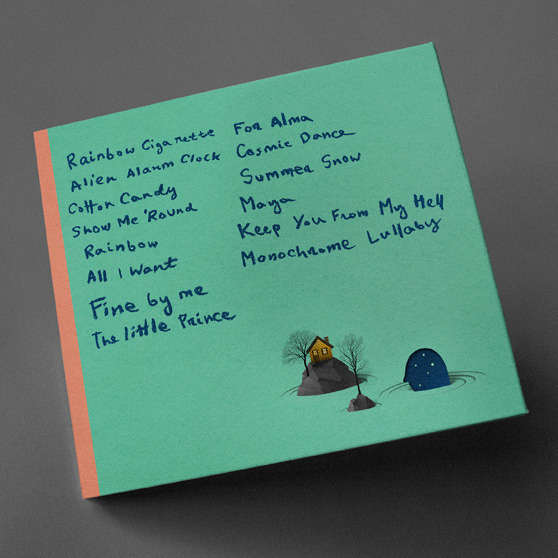 Rainbow Cigarette
Alien Alarm Clock
Cotton Candy
Show Me 'Round
Rainbow
All I Want
Fine by me
The little Prince
For Alma
Cosmic Dance
Summer Snow
Maya
Keep You From My Hell
Monochrome Lullaby